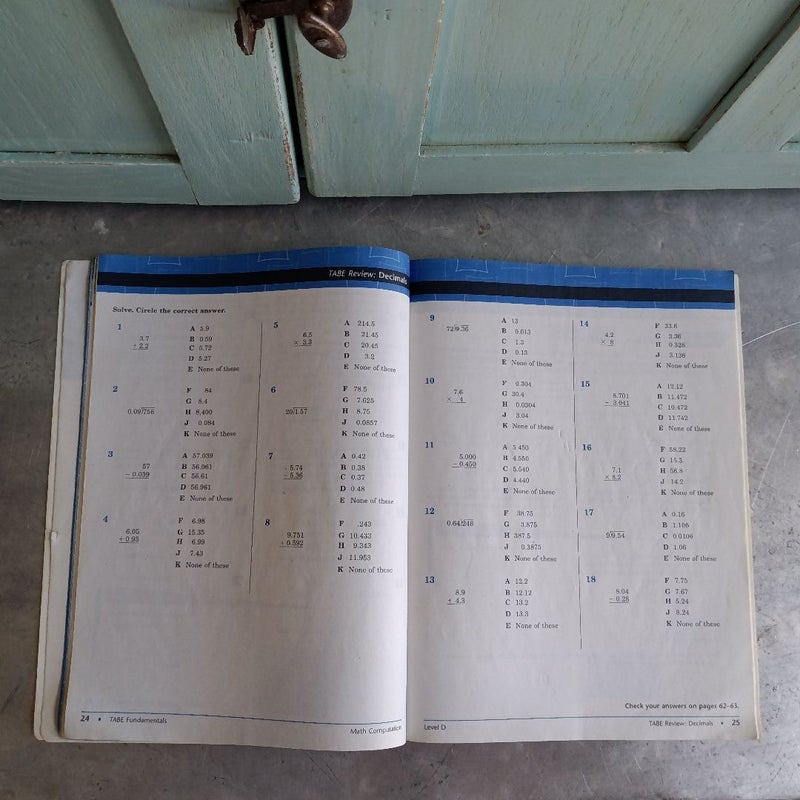 TABE Review: Decimals
Solve. Circle the correct answer.
1
3.7
+ 2.2
A 5.9
B 0.59
C 5.72
D 5.27
E None of these
2
0.09/756
F 84
G 8.4
H 8,400
J 0.084
K None of these
3
57
− 0.039
A 57.039
B 56.061
C 56.61
D 56.961
E None of these
4
+ 0.93
F 6.98
G 15.35
H 6.99
J 7.43
K None of these
5
6.5
× 3.3
A 214.5
B 21.45
C 20.45
D 3.2
E None of these
6
20/1.57
F 78.5
G 7.625
H 8.75
J 0.0857
K None of these
7
5.74
− 5.36
A 0.42
B 0.38
C 0.37
D 0.48
E None of these
8
9.751
+ 0.592
F .243
G 10.433
H 9.343
J 11.953
K None of these
24 • TABE Fundamentals
Math Computation
9
72/9.36
A 13
B 0.013
C 1.3
D 0.13
E None of these
10
7.6
× 4
F 0.304
G 30.4
H 0.0304
J 3.04
K None of these
11
5.000
− 0.450
A 5.450
B 4.550
C 5.540
D 4.440
E None of these
12
0.64/248
F 38.75
G 3.875
H 387.5
J 0.3875
K None of these
13
8.9
+ 4.3
A 12.2
B 12.12
C 13.2
D 13.3
E None of these
14
4.2
× 8
F 33.6
G 3.36
H 0.336
J 3.136
K None of these
15
− 3.041
A 12.12
B 11.472
C 10.472
D 11.742
E None of these
16
7.1
× 8.2
F 58.22
G 15.3
H 56.8
J 14.2
K None of these
17
9/9.54
A 0.16
B 1.106
C 0.0106
D 1.06
E None of these
18
8.04
− 0.28
F 7.75
G 7.67
H 5.24
J 8.24
K None of these
Check your answers on pages 62–63.
Level D
TABE Review: Decimals • 25